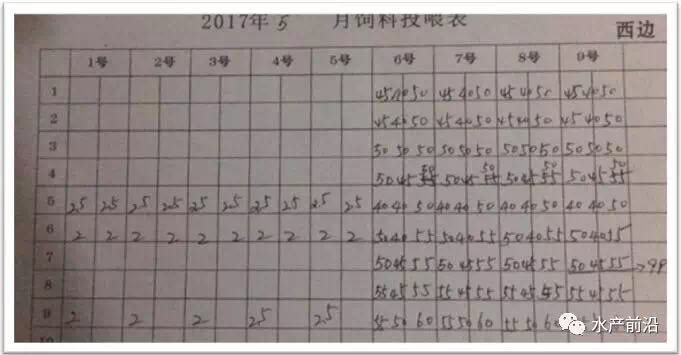 2017年 5 月饲料投喂表
西边
1号 2号 3号 4号 5号 6号 7号 8号 9号
1 45 40 50 45 40 50 45 40 50 45 40 50
2 45 40 50 45 40 50 45 40 50 45 40 50
3 50 50 50 50 50 50 50 50 50 50 50 50
4 50 45 55 50 45 55 50 45 55 50 45 55
5 25 25 25 25 25 25 25 25 25 25 40 40 50 40 40 50 40 40 50 40 40 50
6 2 2 2 2 2 2 2 2 2 2 50 40 55 50 40 55 50 40 55 50 40 55
7 50 45 55 50 45 55 50 45 55 50 45 55
8 55 45 55 55 45 55 55 45 55 55 45 55
9 2 2 2 25 25 55 50 60 55 50 60 55 50 60
水产前沿